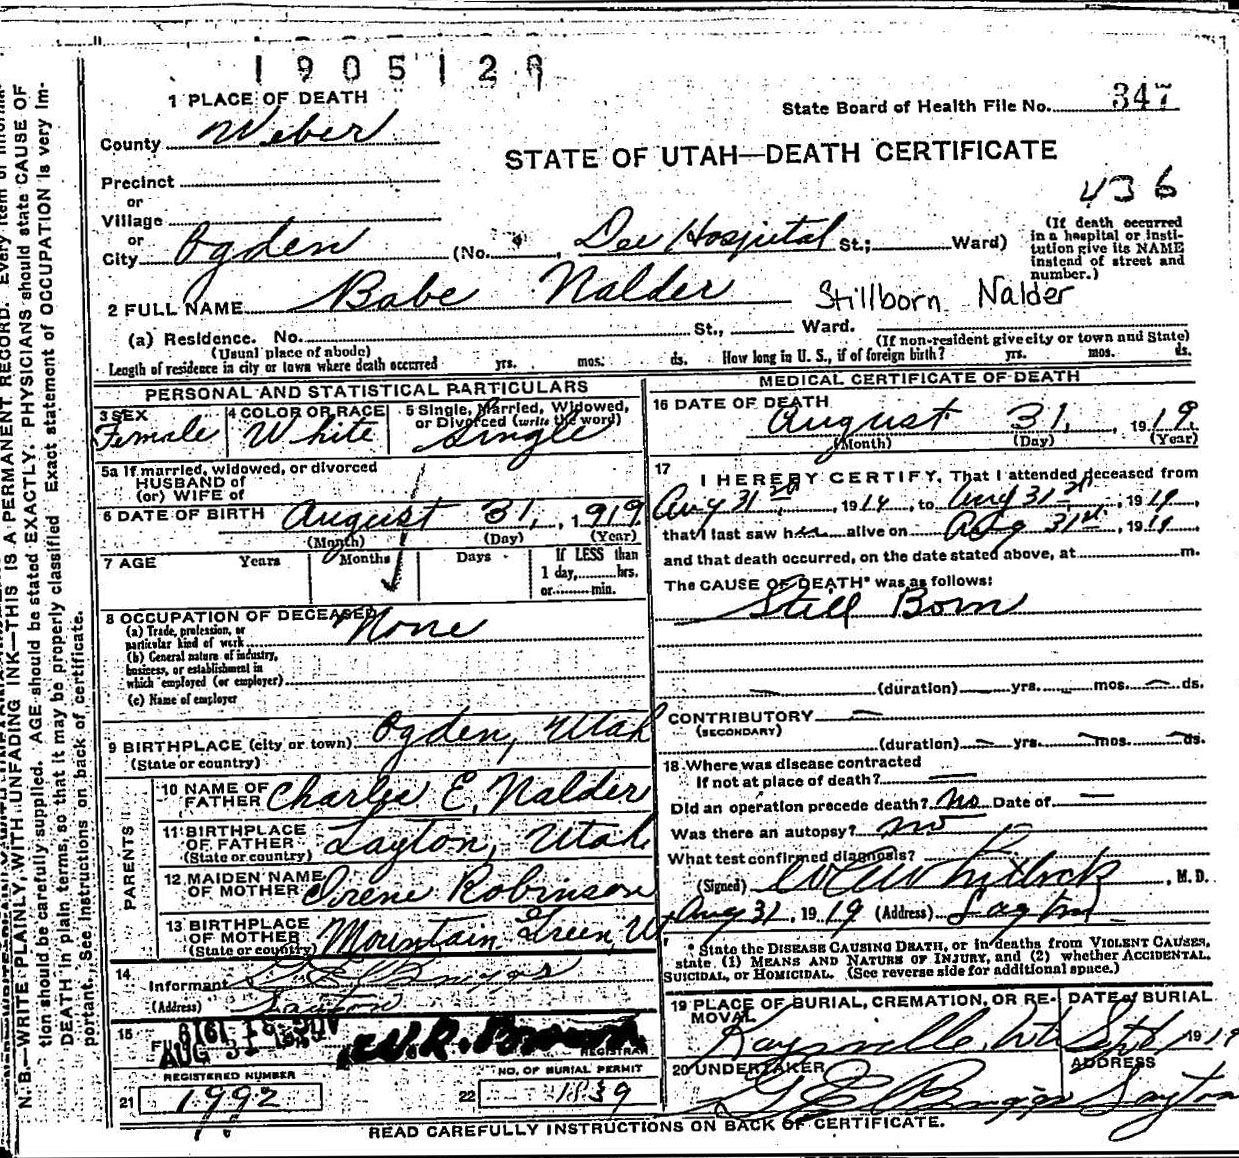 1905128
1 PLACE OF DEATH
State Board of Health File No. 347
County Weber
STATE OF UTAH—DEATH CERTIFICATE
Precinct
436
or
Village
or
City Ogden (No. , Dee Hospital St.; Ward)
(If death occurred in a hospital or institution give its NAME instead of street and number.)
2 FULL NAME Babe Nalder Stillborn Nalder
(a) Residence. No. St., Ward.
(Usual place of abode) (If non-resident give city or town and State)
Length of residence in city or town where death occurred yrs. mos. ds. How long in U. S., if of foreign birth? yrs. mos. ds.
PERSONAL AND STATISTICAL PARTICULARS
3 SEX Female
4 COLOR OR RACE White
5 Single, Married, Widowed, or Divorced (write the word) Single
5a If married, widowed, or divorced
HUSBAND of
(or) WIFE of
6 DATE OF BIRTH August 31, 1919
(Month) (Day) (Year)
7 AGE Years Months Days If LESS than
1 day, hrs.
or min.
8 OCCUPATION OF DECEASED None
(a) Trade, profession, or
particular kind of work
(b) General nature of industry,
business, or establishment in
which employed (or employer)
(c) Name of employer
9 BIRTHPLACE (city or town) Ogden, Utah
(State or country)
PARENTS
10 NAME OF FATHER Charlie E. Nalder
11 BIRTHPLACE OF FATHER Layton, Utah
(State or country)
12 MAIDEN NAME OF MOTHER Irene Robinson
13 BIRTHPLACE OF MOTHER Mountain Green, U
(State or country)
14
Informant G E Briggs
(Address) Layton
15
AUG 31
REGISTRAR
REGISTERED NUMBER
21 1992
NO. OF BURIAL PERMIT
22 1839
MEDICAL CERTIFICATE OF DEATH
16 DATE OF DEATH
August 31, 1919
(Month) (Day) (Year)
17 I HEREBY CERTIFY, That I attended deceased from
Aug 31 st, 1919, to Aug 31 st, 1919,
that I last saw her alive on Aug 31st, 1919
and that death occurred, on the date stated above, at m.
The CAUSE OF DEATH* was as follows:
Still Born
(duration) yrs. mos. ds.
CONTRIBUTORY
(SECONDARY)
(duration) yrs. mos. ds.
18. Where was disease contracted
If not at place of death?
Did an operation precede death? No Date of
Was there an autopsy? no
What test confirmed diagnosis?
(Signed) Whitlock, M.D.
Aug 31, 1919 (Address) Layton
* State the DISEASE CAUSING DEATH, or in deaths from VIOLENT CAUSES,
state (1) MEANS AND NATURE OF INJURY, and (2) whether ACCIDENTAL,
SUICIDAL, or HOMICIDAL. (See reverse side for additional space.)
19 PLACE OF BURIAL, CREMATION, OR REMOVAL
Kaysville, Ut
DATE of BURIAL
Sept 1 1919
20 UNDERTAKER
G E Briggs
ADDRESS
Layton
READ CAREFULLY INSTRUCTIONS ON BACK OF CERTIFICATE.
N. B—WRITE PLAINLY, WITH UNFADING INK—THIS IS A PERMANENT RECORD. Every item of informa-
tion should be carefully supplied. AGE should be stated EXACTLY. PHYSICIANS should state CAUSE OF
DEATH in plain terms, so that it may be properly classified. Exact statement of OCCUPATION is very im-
portant. See instructions on back of certificate.